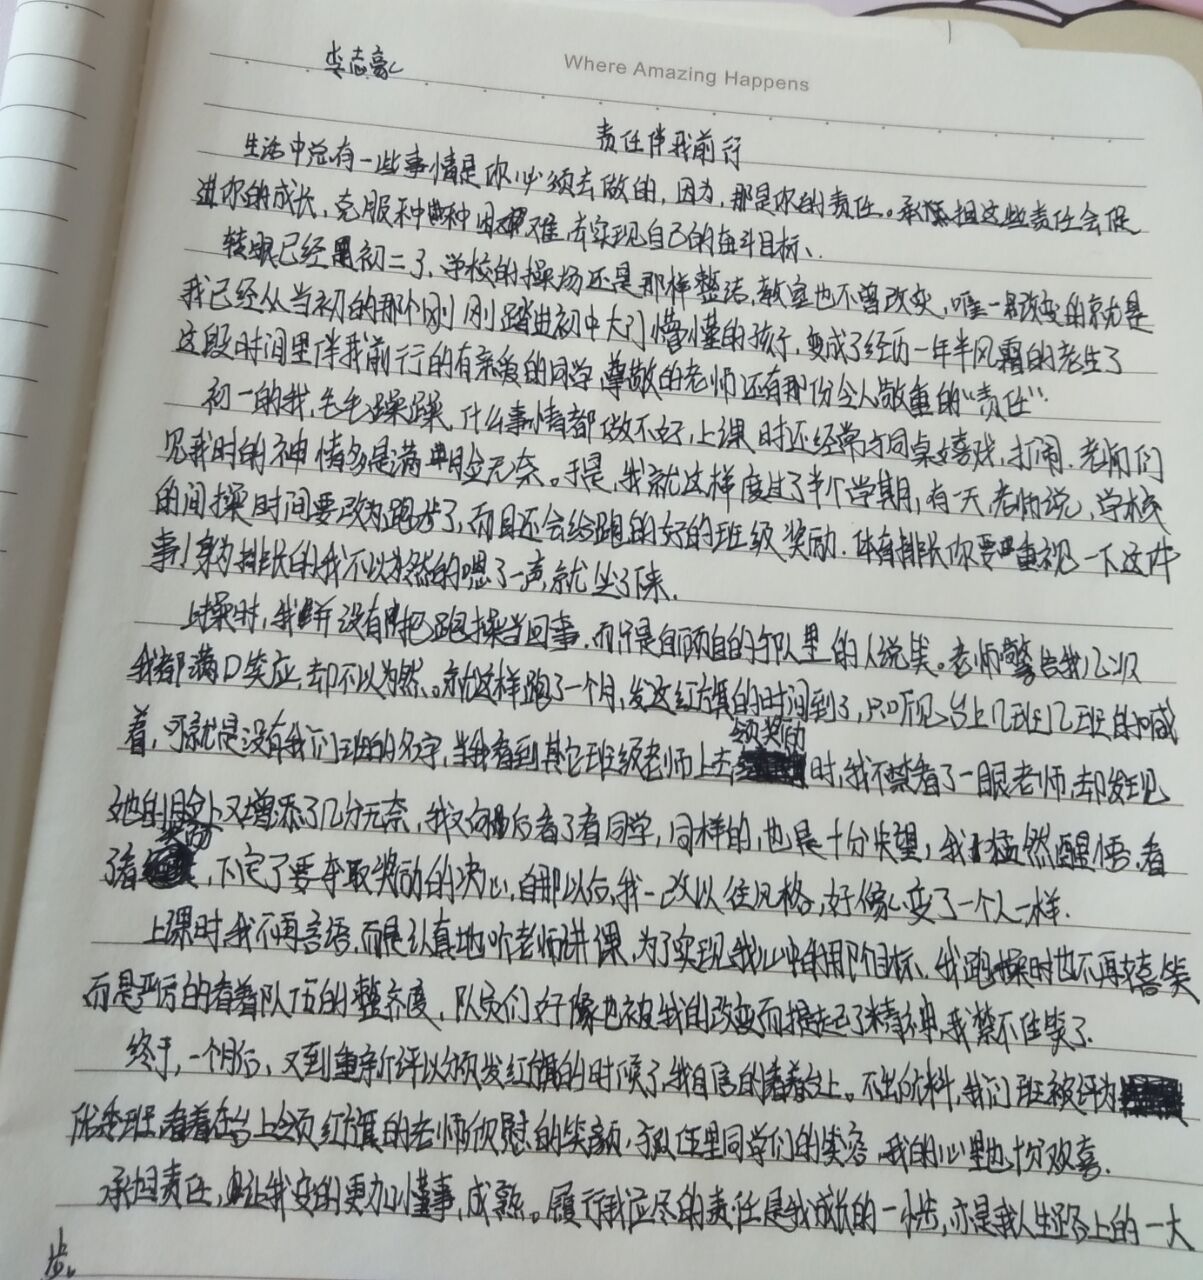 李志豪
Where Amazing Happens
责任伴我前行
生活中总有一些事情是你必须去做的，因为，那是你的责任。承担这些责任会促
进你的成长，克服种种困难，去实现自己的奋斗目标、
转眼已经是初二了，学校的操场还是那样整洁，教室也不曾改变，唯一改变的就是
我已经从当初的那个刚刚踏进初中大门懵懂的孩子，变成了经历一年半风霜的老生了
这段时间里伴我前行的有亲爱的同学，尊敬的老师还有那份令人敬重的“责任”
初一的我，毛毛躁躁，什么事情都做不好，上课时还经常与同桌嬉戏，打闹．老师们
见我时的神情多是满脸无奈。于是，我就这样度过了半个学期，有一天，老师说，学校
的间操时间要改为跑步了，而且还会给跑的好的班级奖励．体育排长你要重视一下这件
事！身为排长的我不以为然的嗯了一声，就坐了下来．
上操时，我并没有把跑操当回事，而只是自顾自的与队里的人说笑。老师警告我几次
我都满口答应，却不以为然。就这样跑了一个月，发这红旗的时间到了，只听见台上几班几班的喊
着，可就是没有我们班的名字，当我看到其它班级老师上去领奖励时，我不禁看了一眼老师，却发现
她的脸上又增添了几分无奈，我又向后看了看同学，同样的，也是十分失望，我猛然醒悟，看
了看奖励，下定了要夺取奖励的决心，自那以后，我一改以往风格，好像变了一个人一样．
上课时，我不再言语，而是认真地听老师讲课，为了实现我心中的那个目标、我跑操时也不再嘻笑
而是严厉的看着队伍的整齐度，队员们好像也被我的改变而提起了精神，我禁不住笑了．
终于，一个月后，又到重新评以颁发红旗的时候了，我自信的看着台上。不出所料，我们班被评为
优秀班，看着在台上领红旗的老师欣慰的笑颜，队伍里同学们的笑容，我的心里也十分欢喜．
承担责任，让我变的更加懂事，成熟。履行我应尽的责任是我成长的一小步，亦是我人生路上的一大
步。